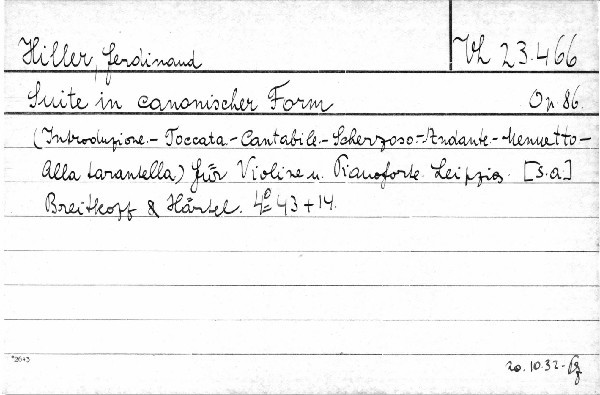 Hiller, Ferdinand
Vh 23.466
Suite in canonischer Form Op. 86.
(Introduzione.- Toccata.- Cantabile.- Scherzoso.- Andante.- Menuetto-
Alla tarantella) für Violine u. Pianoforte. Leipzig. [s.a.]
Breitkopf & Härtel. 4º 43 + 14.
*2643
20.10.32-